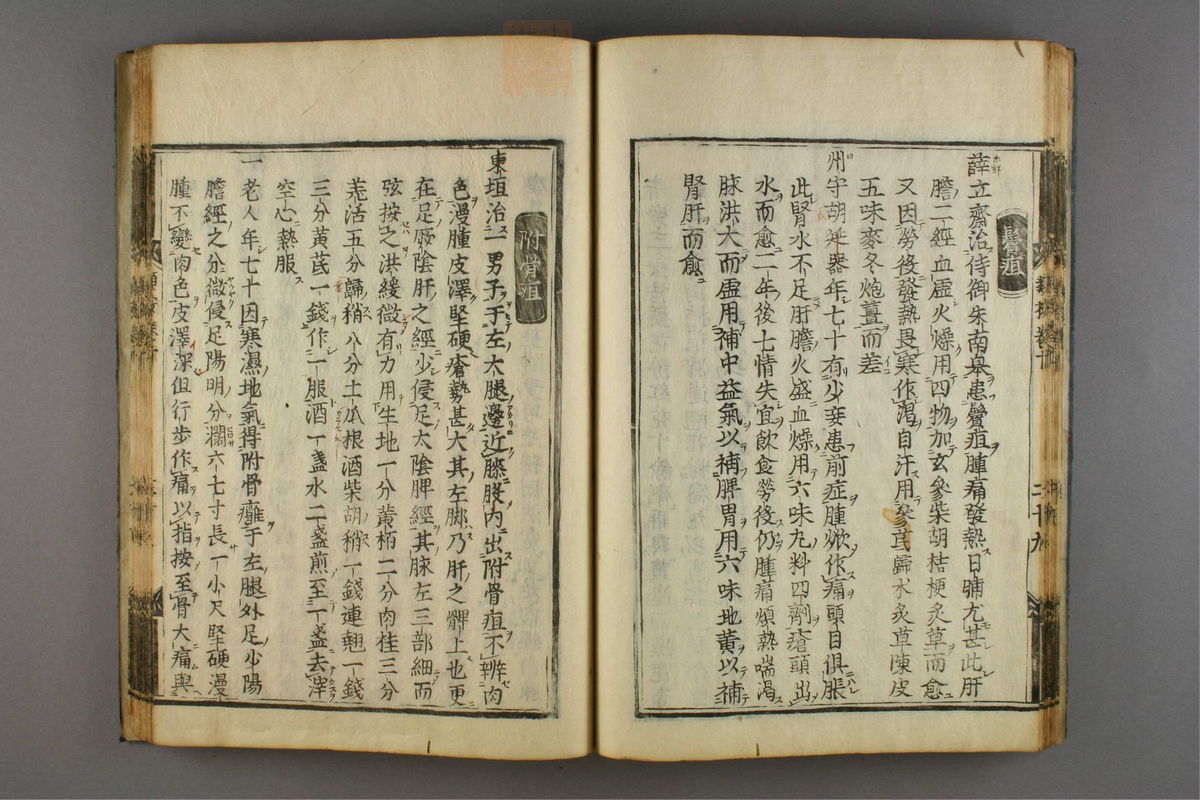 鬢疽
薛立齋治侍御朱南皋患鬢疽腫痛發熱日晡尤甚此肝
膽二經血虛火燥用四物加玄參柴胡桔梗炙草而愈
又因勞後發熱畏寒作渴自汗用參芪歸朮炙草陳皮
五味麥冬炮薑而差
州守胡廷器年七十有少妾患前症腫焮作痛頭目俱脹
此腎水不足肝膽火盛血燥用六味丸料四劑瘡頭出
水而愈二年後七情失宜飲食勞後仍腫痛煩熱喘渴
脉洪大而虛用補中益氣以補脾胃用六味地黃以補
腎肝而愈
附骨疽
東垣治一男子于左大腿邊近膝股內出附骨疽不辨肉
色漫腫皮澤堅硬瘡勢甚大其左脚乃肝之髀上也更
在足厥陰肝之經少侵足太陰脾經其脉左三部細而
弦按之洪緩微有力用生地一分黃栢二分肉桂三分
羌活五分歸稍八分土瓜根酒柴胡稍一錢連翹一錢
三分黃芪一錢作一服酒一盞水二盞煎至一盞去滓
空心熱服
一老人年七十因寒濕地氣得附骨癰于左腿外足少陽
膽經之分微侵足陽明分濶六七寸長一小尺堅硬漫
腫不變肉色皮澤深但行步作痛以指按至骨大痛與